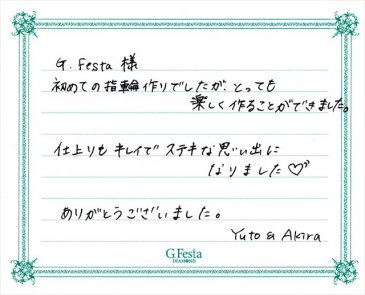 G. Festa 様
初めての指輪作りでしたが、とっても
楽しく作ることができました。
仕上りもキレイでステキな思い出に
なりました♡
ありがとうございました。
Yuto & Akira
G.Festa
DIAMOND